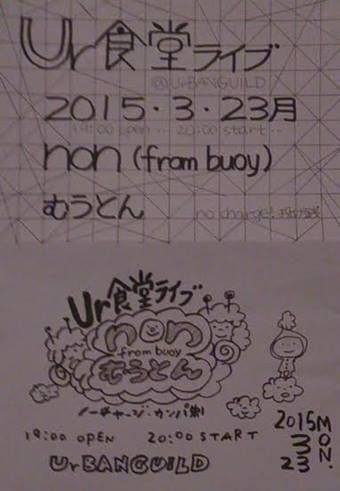 Ur食堂ライブ
@UrBANGUILD
2015・3・23月
19:00 open・・20:00 start・・
non (from buoy)
むうとん
no charge!
Ur食堂ライブ
non
from buoy
むうとん
ノーチャージ・カンパ制
19:00 OPEN 20:00 START
UrBANGUILD
2015 MON.
3
23